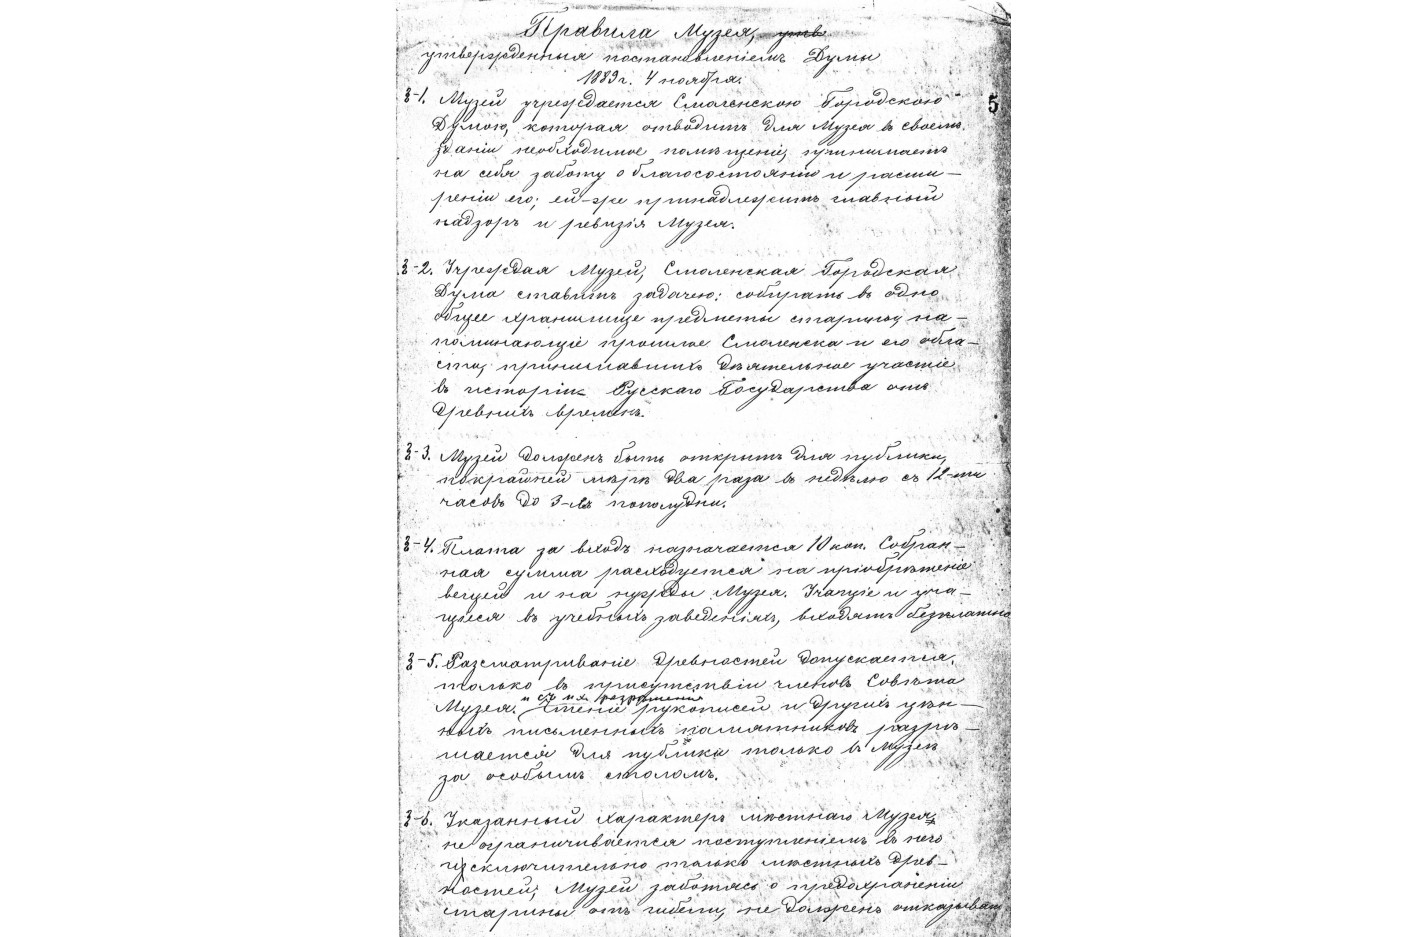 Правила Музея, утв
утвержденныя постановленіемъ Думы
1889 г. 4 ноября.
5
§-1. Музей учреждается Смоленскою Городскою
Думою, которая отводитъ для Музея въ своемъ
зданіи необходимое помѣщеніе, принимаетъ
на себя заботу о благосостояніи и расши-
реніи его; ей-же принадлежитъ главный
надзоръ и ревизія Музея.
§-2. Учреждая Музей, Смоленская Городская
Дума ставитъ задачею: собирать въ одно
общее хранилище предметы старины, на-
поминающіе прошлое Смоленска и его обла-
сти, принимавшихъ дѣятельное участіе
въ исторіи Русскаго Государства отъ
древнихъ временъ.
§-3. Музей долженъ быть открытъ для публики,
покрайней мѣрѣ два раза въ недѣлю съ 12-ти
часовъ до 3-хъ пополудни.
§-4. Плата за входъ назначается 10 коп. Собран-
ная сумма расходуется на пріобрѣтеніе
вещей и на нужды Музея. Учащіе и уча-
щіеся въ учебныхъ заведеніяхъ, входятъ безплатно
§-5. Разсматриваніе древностей допускается
только въ присутствіи членовъ Совѣта
и съ ихъ разрѣшенія
Музея. Чтеніе рукописей и другихъ цѣн-
ныхъ письменныхъ памятниковъ разрѣ-
шается для публики только въ Музеѣ
за особымъ столомъ.
§-6. Указанный характеръ мѣстнаго Музея,
не ограничивается поступленіемъ въ него
исключительно только мѣстныхъ древ-
ностей; Музей заботясь о предохраненіи
старины отъ гибели, не долженъ отказывать